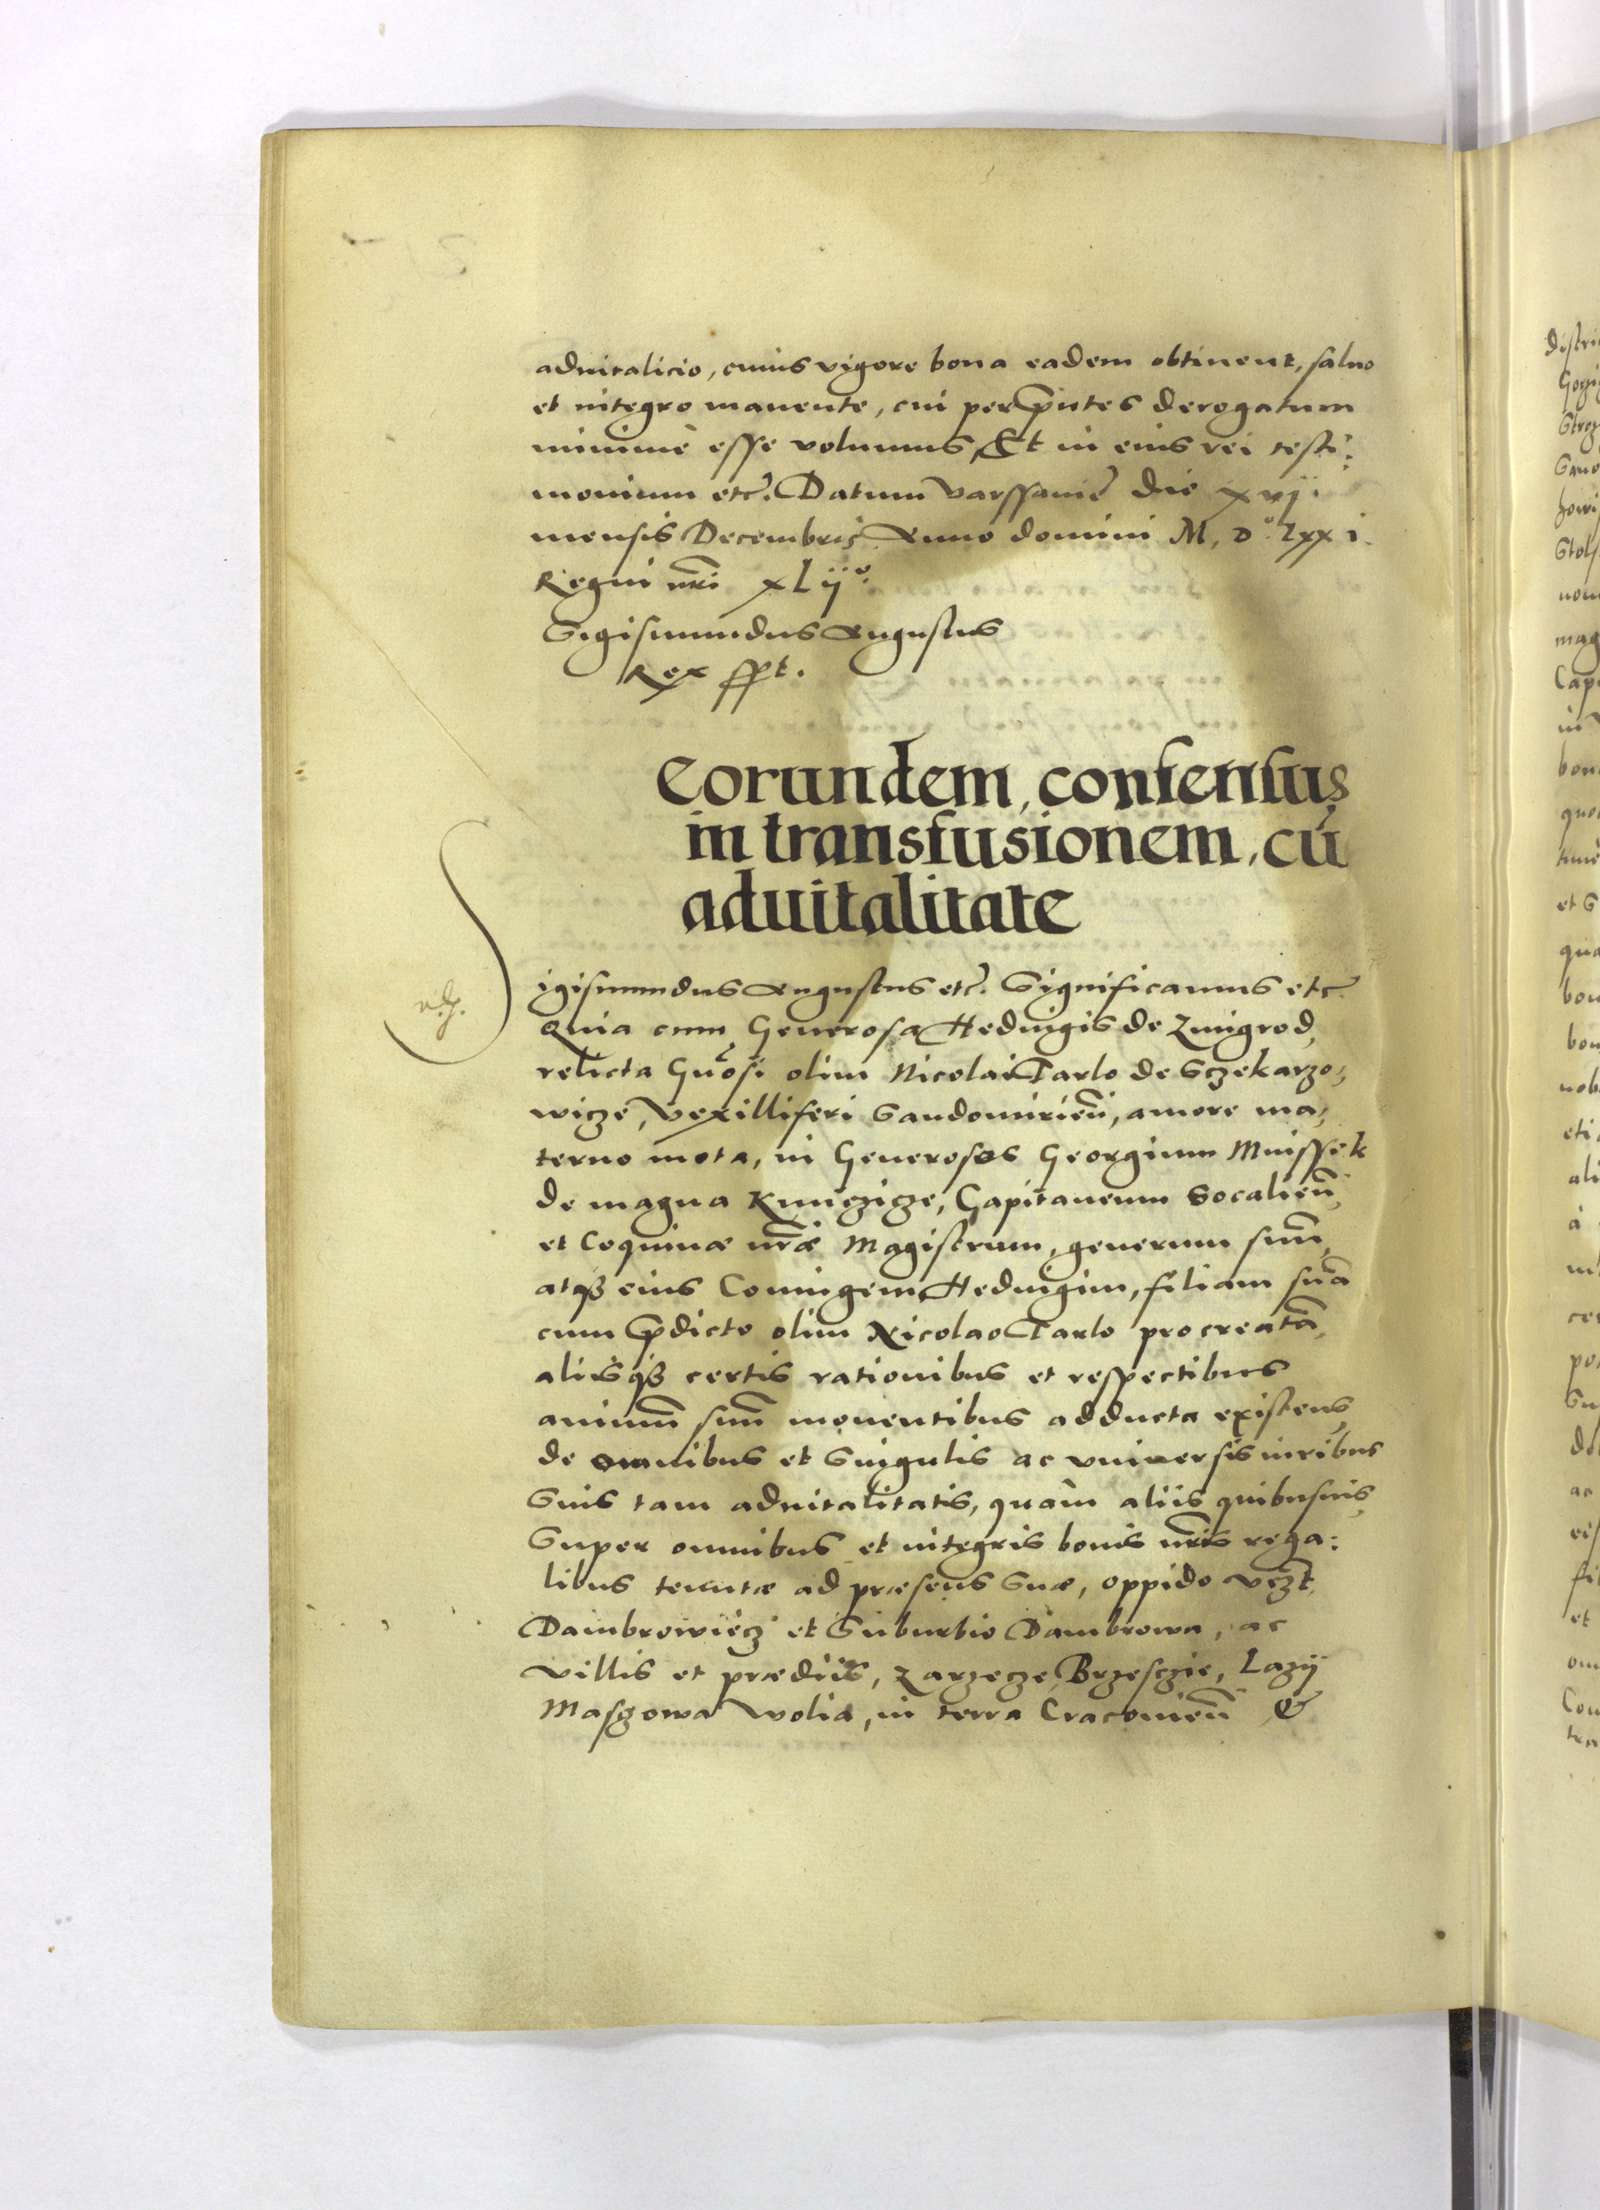 aduitalicio, cuius vigore bona eadem obtinent, saluo
et integro manente, cui per p̃ntes derogatum
minimè esse volumus, Et in eius rei testi:
monium etc̃. Datum varssauiẽ die xvij.
mensis Decembris Anno domini M, D.º Lxxi.
Regni nr̃i xLijº.
Sigismundus Augustus
Rex sspt.
Eorundem, consensus
in transfusionem, cũ
aduitalitate
Sigismundus Augustus etc̃. Significamus etc̃
Quia cum Generosa Heduigis de Zmigrod,
relicta Gñosi olim Nicolai Tarlo de Sczekarzo,
wicze, Vexilliferi Sandomirieñ, amore ma,
terno mota, in Generosos Georgium Mnissek
de magna Kunczicze, Capitaneum Socalieñ,
et Coquinæ nr̃æ Magistrum, generum suũ,
atqʒ eius Coniugem Hedwigim, filiam suã
cum p̃dicto olim Nicolao Tarlo procreatã,
aliisqʒ certis rationibus et respectibus
animũ suũ mouentibus adducta existens,
de omnibus et Singulis ac vniuersis iuribus
Suis tam aduitalitatis, quàm aliis quibusuis,
Super omnibus et integris bonis nr̃is rega:
libus tenutæ ad præsens Suæ, oppido vczt.
Dambrowiecz et Suburbio Dambrowa, ac
villis et prædiis, Zarzecze, Brzesczie, Lazij
Masgowa Wolia, in terra Cracouieñ &